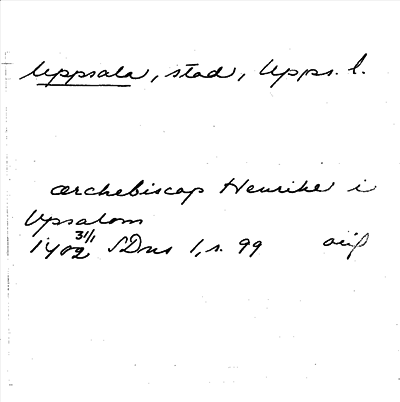 Uppsala, stad, Upps. l.
ærchebiscop Henrike i
Vpsalom
1402 31/1 SDns 1, s. 99 avs